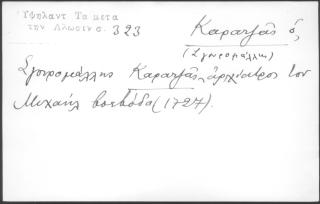 Υψηλαντ Τα μετα
την Αλωσιν σ. 323
Καρατζᾶς ὁ,
(Σγουρομάλλης)
Σγουρομάλλης Καρατζᾶς, ἀρχίατρος του
Μιχαήλ βοεβόδα (1727).